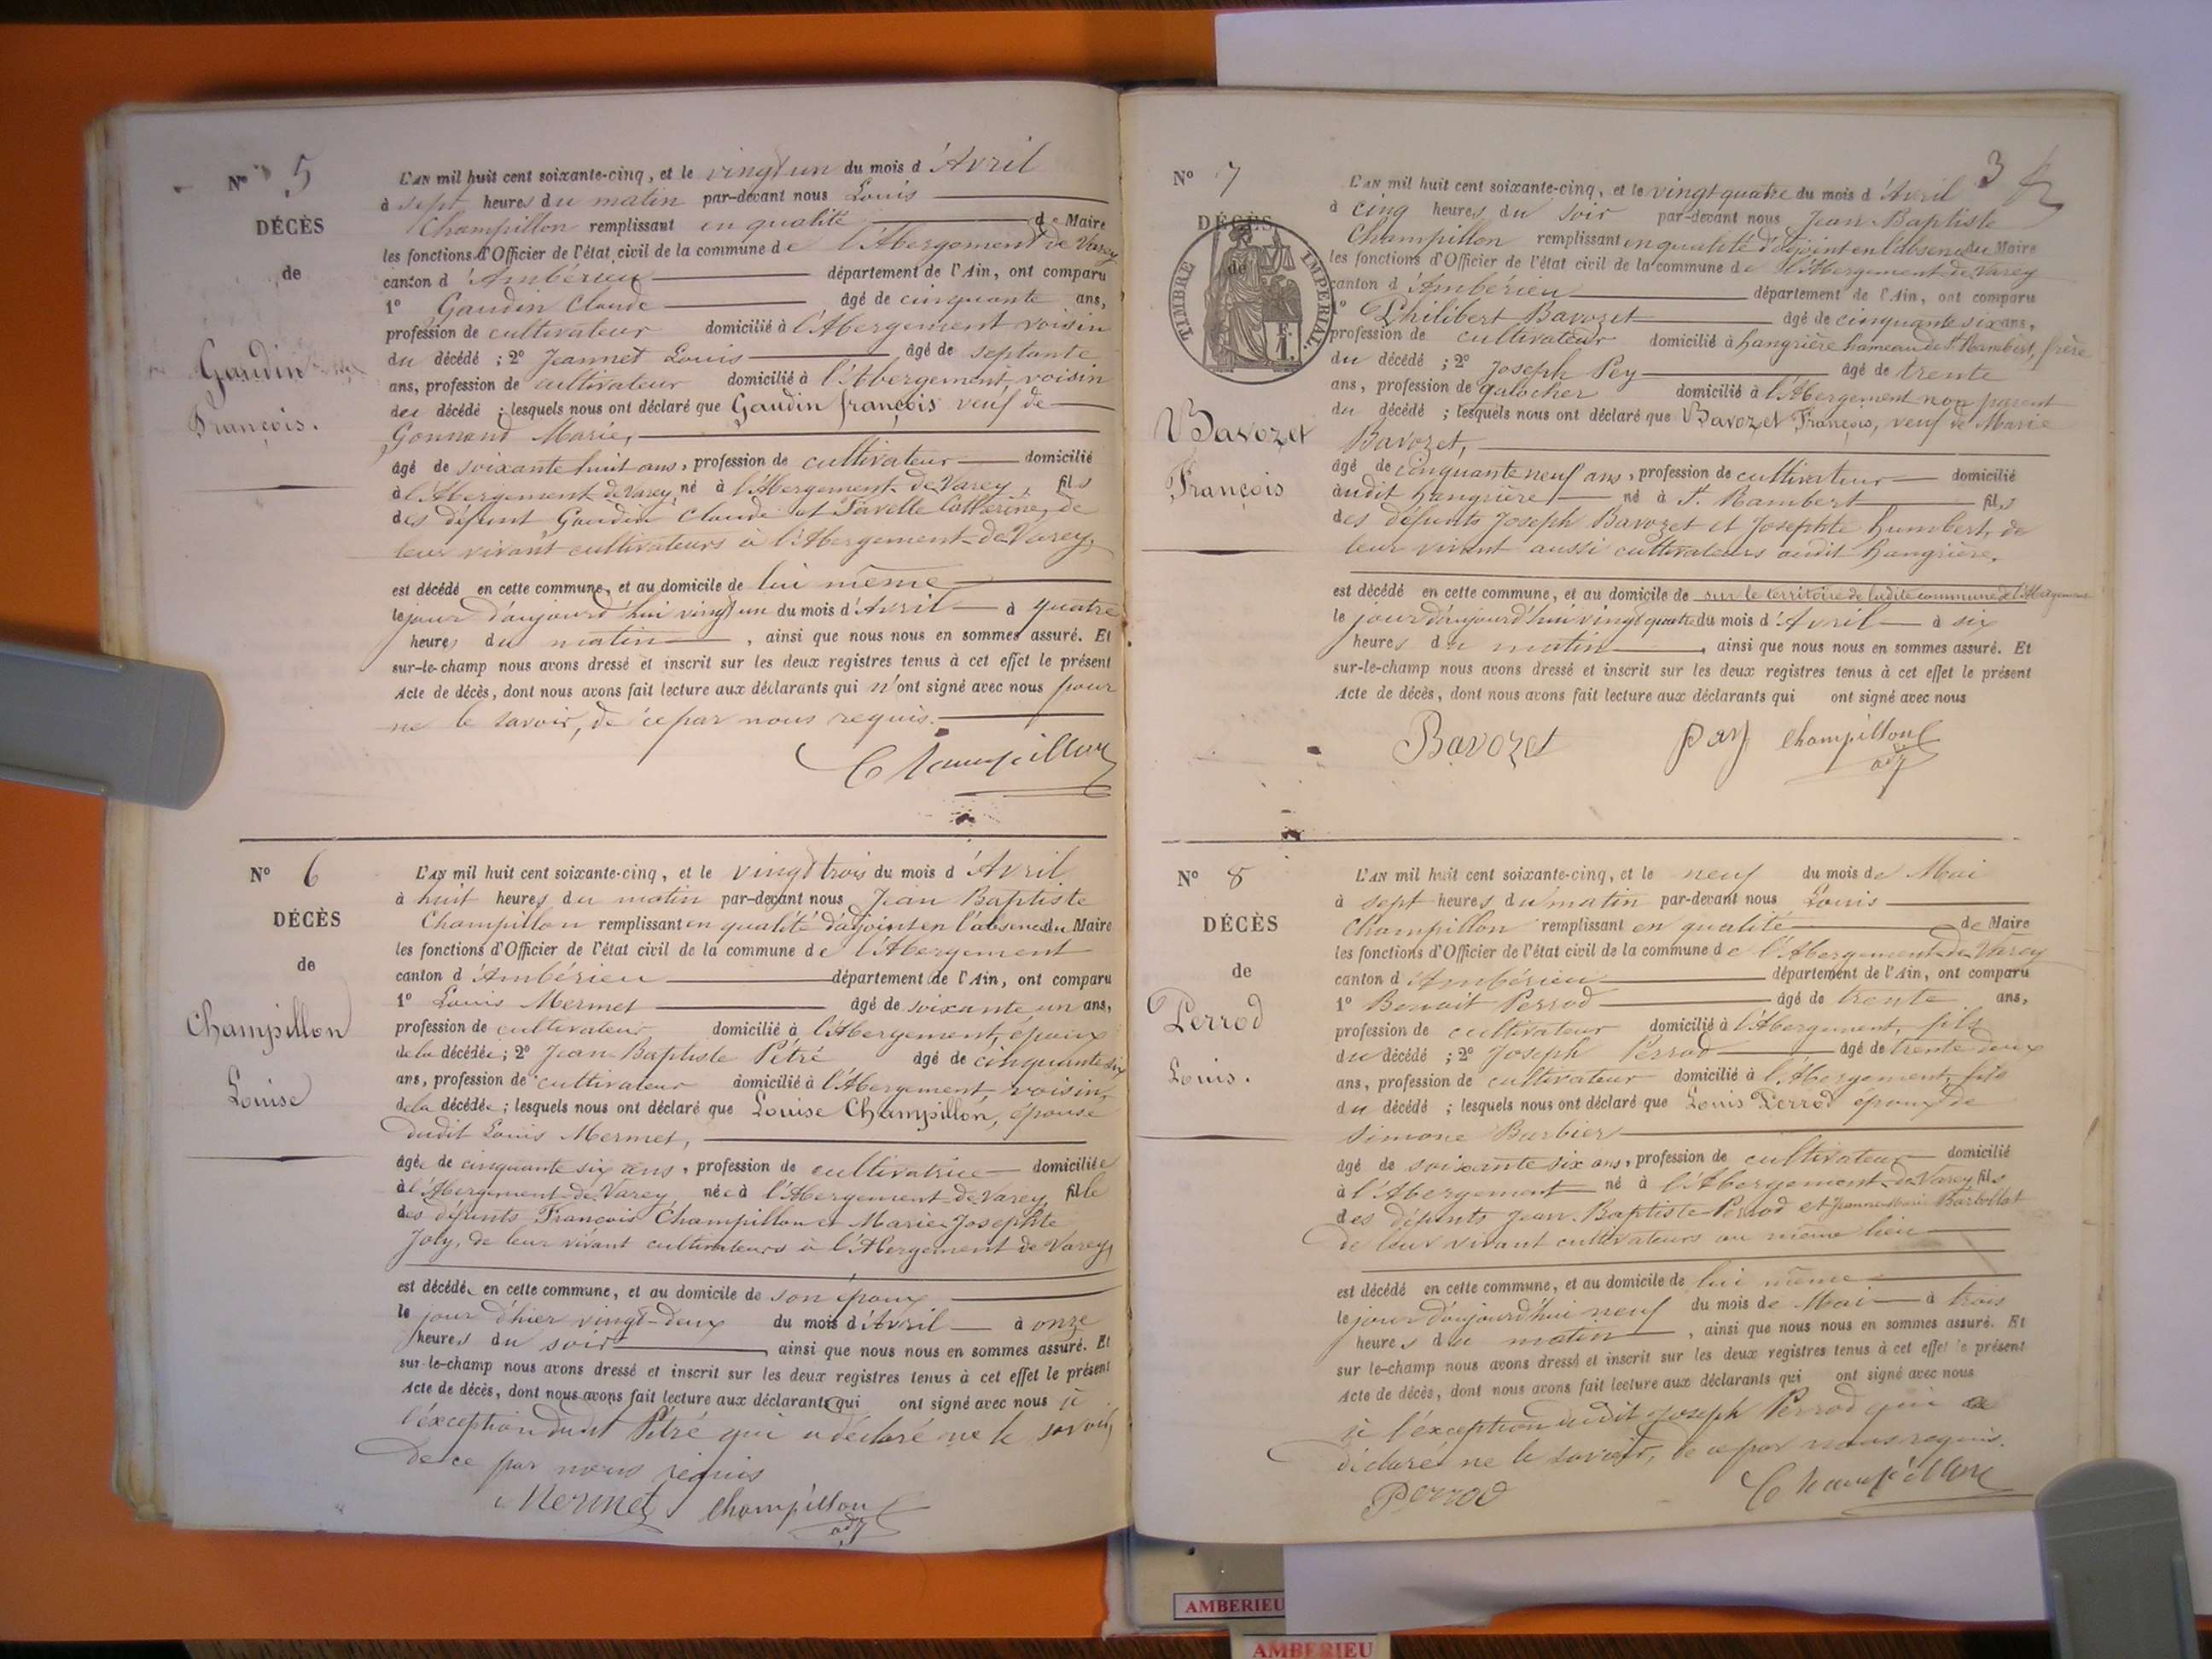 N° 5
DÉCÈS
de
Gaudin
François.
L'AN mil huit cent soixante-cinq, et le vingt un du mois d'Avril
à sept heures du matin par-devant nous Louis
Champillon remplissant en qualité de Maire
les fonctions d'Officier de l'état civil de la commune de l'Abergement de Varey
canton d'Ambérieu département de l'Ain, ont comparu
1° Gaudin Claude âgé de cinquante ans,
profession de cultivateur domicilié à l'Abergement voisin
du décédé ; 2° Jeannet Louis âgé de septante
ans, profession de cultivateur domicilié à l'Abergement, voisin
du décédé ; lesquels nous ont déclaré que Gaudin françois veuf de
Gonnand Marie,
âgé de soixante huit ans, profession de cultivateur domicilié
à l'Abergement de Varey, né à l'Abergement de Varey, fils
des défunt Gaudin Claude et Favelle Catherine, de
leur vivant cultivateurs à l'Abergement de Varey,
est décédé en cette commune, et au domicile de lui même
le jour d'aujourd'hui vingt un du mois d'Avril à quatre
heures du matin, ainsi que nous nous en sommes assuré. Et
sur-le-champ nous avons dressé et inscrit sur les deux registres tenus à cet effet le présent
Acte de décès, dont nous avons fait lecture aux déclarants qui n'ont signé avec nous pour
ne le savoir, de ce par nous requis.
Champillon
N° 6
DÉCÈS
de
Champillon
Louise
L'AN mil huit cent soixante-cinq, et le vingt trois du mois d'Avril
à huit heures du matin par-devant nous Jean Baptiste
Champillon remplissant en qualité d'adjoint en l'absence du Maire
les fonctions d'Officier de l'état civil de la commune de l'Abergement
canton d'Ambérieu département de l'Ain, ont comparu
1° Louis Mermet âgé de soixante un ans,
profession de cultivateur domicilié à l'Abergement, époux
de la décédée ; 2° Jean-Baptiste Pétré âgé de cinquante six
ans, profession de cultivateur domicilié à l'Abergement, voisin
de la décédée ; lesquels nous ont déclaré que Louise Champillon, épouse
dudit Louis Mermet,
âgée de cinquante six ans, profession de cultivatrice domiciliée
à l'Abergement de Varey, née à l'Abergement de Varey, fille
des défunts François Champillon et Marie Josephte
Joly, de leur vivant cultivateurs à l'Abergement de Varey,
est décédée en cette commune, et au domicile de son époux
le jour d'hier vingt-deux du mois d'Avril à onze
heures du soir, ainsi que nous nous en sommes assuré. Et
sur-le-champ nous avons dressé et inscrit sur les deux registres tenus à cet effet le présent
Acte de décès, dont nous avons fait lecture aux déclarants qui ont signé avec nous à
l'exception dudit Pétré qui a déclaré ne le savoir,
de ce par nous requis
Mermet Champillon
adj
3
N° 7
DÉCÈS
de
TIMBRE IMPERIAL
Bavozet
François
L'AN mil huit cent soixante-cinq, et le vingt quatre du mois d'Avril
à cinq heures du soir par-devant nous Jean-Baptiste
Champillon remplissant en qualité d'adjoint en l'absence du Maire
les fonctions d'Officier de l'état civil de la commune de l'Abergement de Varey
canton d'Ambérieu département de l'Ain, ont comparu
1° Philibert Bavozet âgé de cinquante six ans,
profession de cultivateur domicilié à hangrière hameau de St. Rambert, frère
du décédé ; 2° Joseph Pey âgé de trente
ans, profession de galocher domicilié à l'Abergement non parent
du décédé ; lesquels nous ont déclaré que Bavozet François, veuf de Marie
Bavozet,
âgé de cinquante neuf ans, profession de cultivateur domicilié
audit hangrière né à St. Rambert fils
des défunts Joseph Bavozet et Josephte humbert, de
leur vivant aussi cultivateurs audit hangrière.
est décédé en cette commune, et au domicile de sur le territoire de ladite commune de l'Abergement
le jour d'aujourd'hui vingt quatre du mois d'Avril à six
heures du matin, ainsi que nous nous en sommes assuré. Et
sur-le-champ nous avons dressé et inscrit sur les deux registres tenus à cet effet le présent
Acte de décès, dont nous avons fait lecture aux déclarants qui ont signé avec nous
Bavozet Pey Champillon
adj
N° 8
DÉCÈS
de
Perrod
Louis.
L'AN mil huit cent soixante-cinq, et le neuf du mois de Mai
à sept heures du matin par-devant nous Louis
Champillon remplissant en qualité de Maire
les fonctions d'Officier de l'état civil de la commune de l'Abergement de Varey
canton d'Ambérieu département de l'Ain, ont comparu
1° Benoit Perrod âgé de trente ans,
profession de cultivateur domicilié à l'Abergement, fils
du décédé ; 2° Joseph Perrod âgé de trente deux
ans, profession de cultivateur domicilié à l'Abergement, fils
du décédé ; lesquels nous ont déclaré que Louis Perrod époux de
Simone Barbier
âgé de soixante six ans, profession de cultivateur domicilié
à l'Abergement né à l'Abergement de Varey fils
des défunts Jean-Baptiste Perrod et Jeanne Marie Barbollat
de leur vivant cultivateurs au même lieu
est décédé en cette commune, et au domicile de lui même
le jour d'aujourd'hui neuf du mois de Mai à trois
heures du matin, ainsi que nous nous en sommes assuré. Et
sur le-champ nous avons dressé et inscrit sur les deux registres tenus à cet effet le présent
Acte de décès, dont nous avons fait lecture aux déclarants qui ont signé avec nous
à l'exception dudit Joseph Perrod qui a
déclaré ne le savoir, de ce par nous requis.
Perrod Champillon
AMBERIEU
AMBERIEU